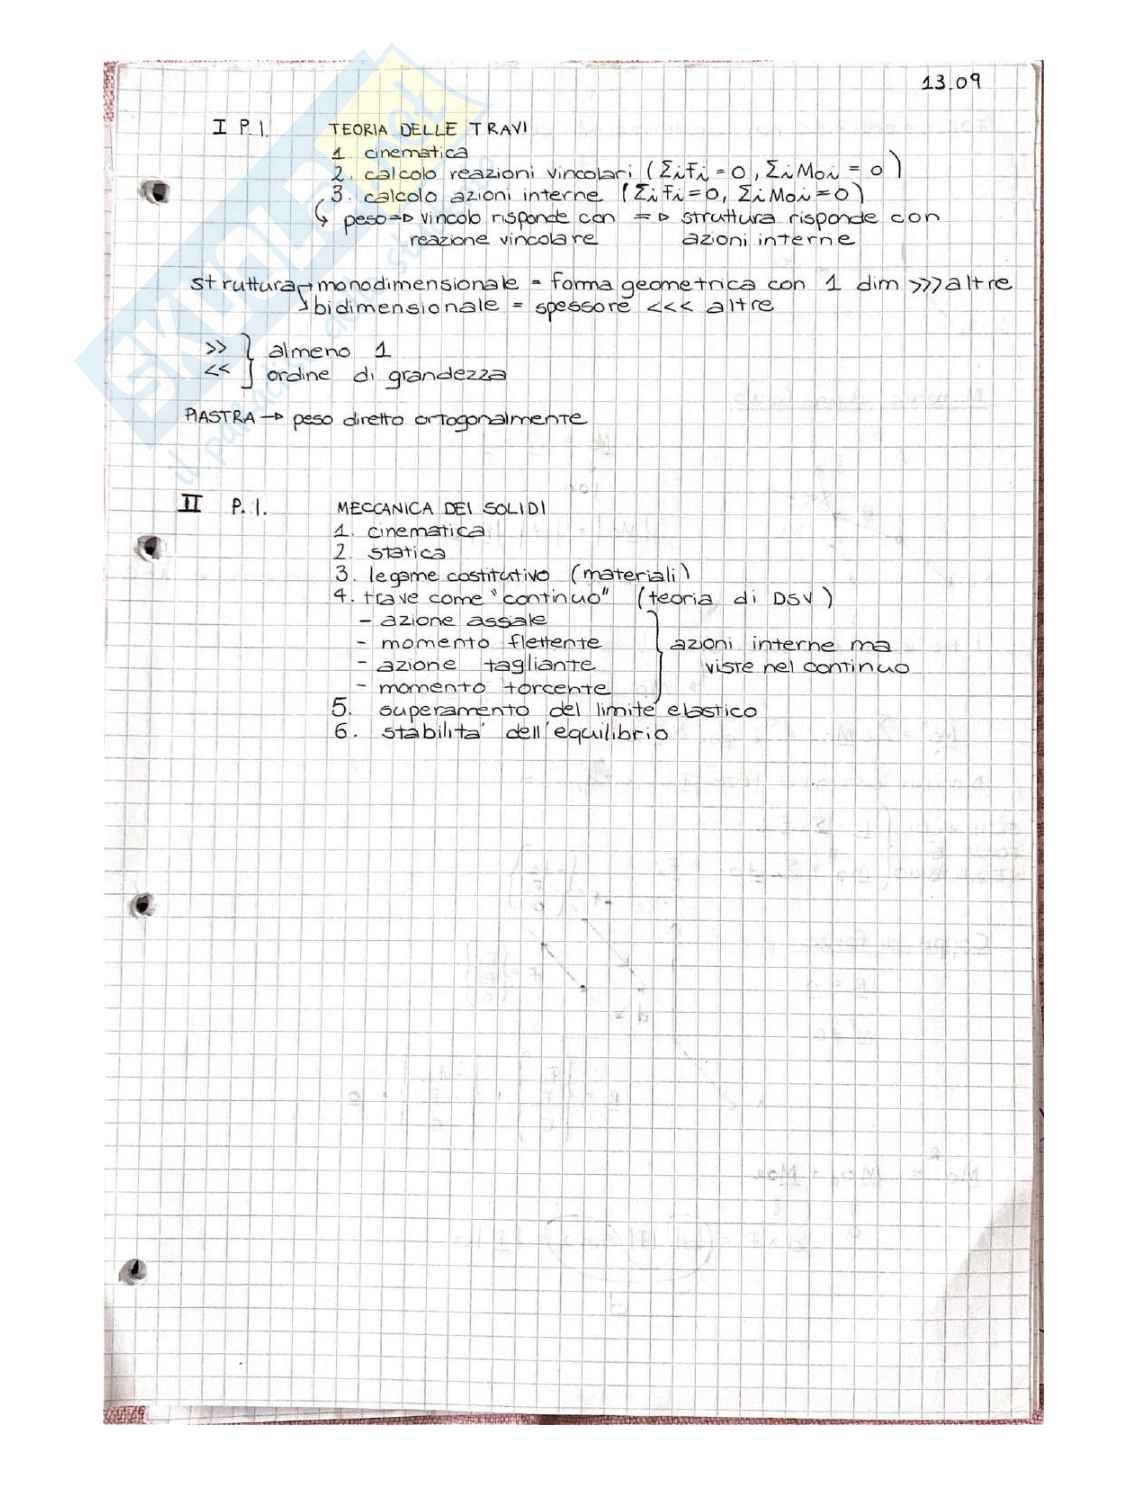 13.09
I P.I. TEORIA DELLE TRAVI
1. cinematica
2. calcolo reazioni vincolari (Σᵢ Fᵢ = 0, Σᵢ Moᵢ = 0)
3. calcolo azioni interne (Σᵢ Fᵢ = 0, Σᵢ Moᵢ = 0)
↳ peso → vincolo risponde con => struttura risponde con
reazione vincolare azioni interne
struttura → monodimensionale = forma geometrica con 1 dim >>> altre
↘ bidimensionale = spessore <<< altre
>> } almeno 1
<< } ordine di grandezza
PIASTRA → peso diretto ortogonalmente
II P.I. MECCANICA DEI SOLIDI
1. cinematica
2. statica
3. legame costitutivo (materiali)
4. trave come "continuo" (teoria di DSV)
- azione assale
- momento flettente } azioni interne ma
- azione tagliante viste nel continuo
- momento torcente
5. superamento del limite elastico
6. stabilita' dell'equilibrio
SKUOLA.net